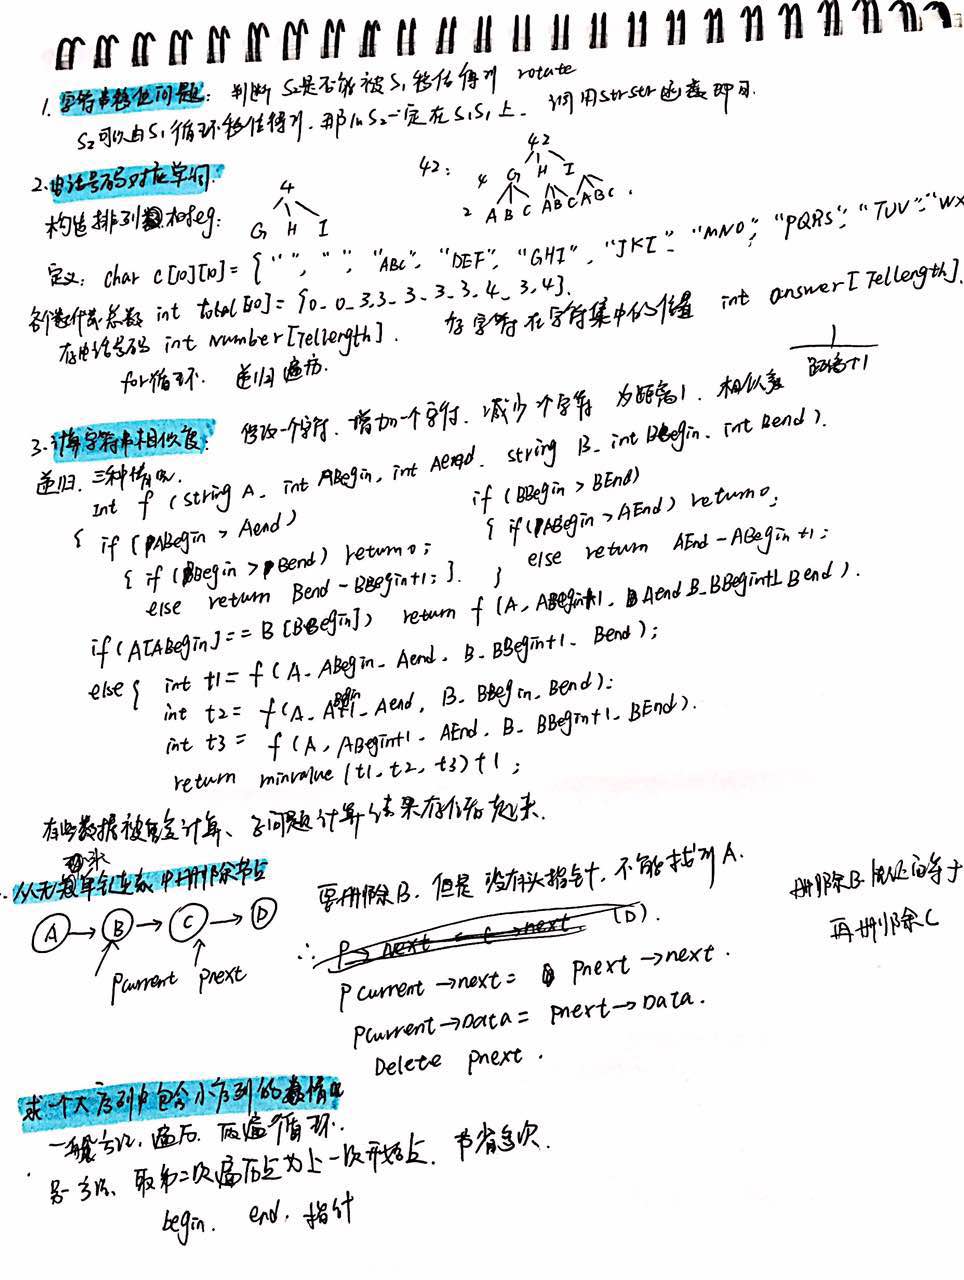 1. 字符串移位问题: 判断 S2是否能被S1移位得到 rotate
S2可以由S1循环移位得到, 那么S2一定在S1S1上. 调用strstr函数即可.
2. 电话号码对应单词:
4 G H I
42: 42
4 G H I
2 ABC ABC ABC.
构造排列
定义: char c[10][10] = { "", "", "ABC", "DEF", "GHI", "JKI", "MNO", "PQRS", "TUV", "WX
各个数代表总数 int total[10] = {0, 0, 3, 3, 3, 3, 3, 4, 3, 4}.
存电话号码 int number[Tellength]. 存字符在字符集中的位置 int answer[Tellength].
for循环. 递归遍历.
3. 计算字符串相似度: 修改一个字符, 增加一个字符, 减少一个字符 为距离1. 相似度
1
距离+1
递归. 三种情况.
Int f (string A, int ABegin, int Aend, string B, int BBegin, int Bend).
{ if (ABegin > Aend)
{ if (BBegin > Bend) return 0;
else return Bend - BBegin+1; }.
if (BBegin > BEnd)
{ if(ABegin > AEnd) return 0;
else return AEnd - ABegin +1;
}
if (A[ABegin] == B[BBegin]) return f (A, ABegin+1, Aend, B, BBegin+1, Bend).
else { int t1 = f (A, ABegin, Aend, B, BBegin+1, Bend);
int t2 = f(A, ABegin+1, Aend, B, BBegin, Bend);
int t3 = f (A, ABegin+1, AEnd, B, BBegin+1, BEnd).
return minvalue (t1, t2, t3) +1;
有些数据被重复计算、子问题计算结果存储起来.
从无头单链表中删除节点
A → B → C → D
pcurrent pnext
要删除B, 但是没有头指针, 不能找到A.
删除B. 优化间等于
再删除C
∴ (D).
pcurrent → next = pnext → next.
pcurrent → Data = pnext → Data.
Delete pnext.
求一个大序列中包含小序列的
一般方法, 遍历. 两遍循环.
另一方法、取第二次遍历点为上一次开始点. 节省多次
begin. end. 指针